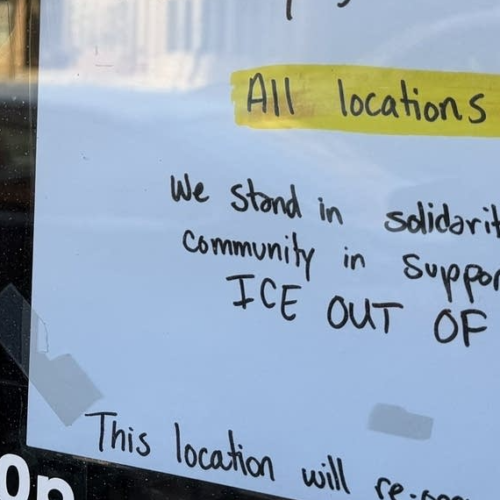 All locations
We stand in solidarit
community in suppor
ICE OUT OF
This location will
on